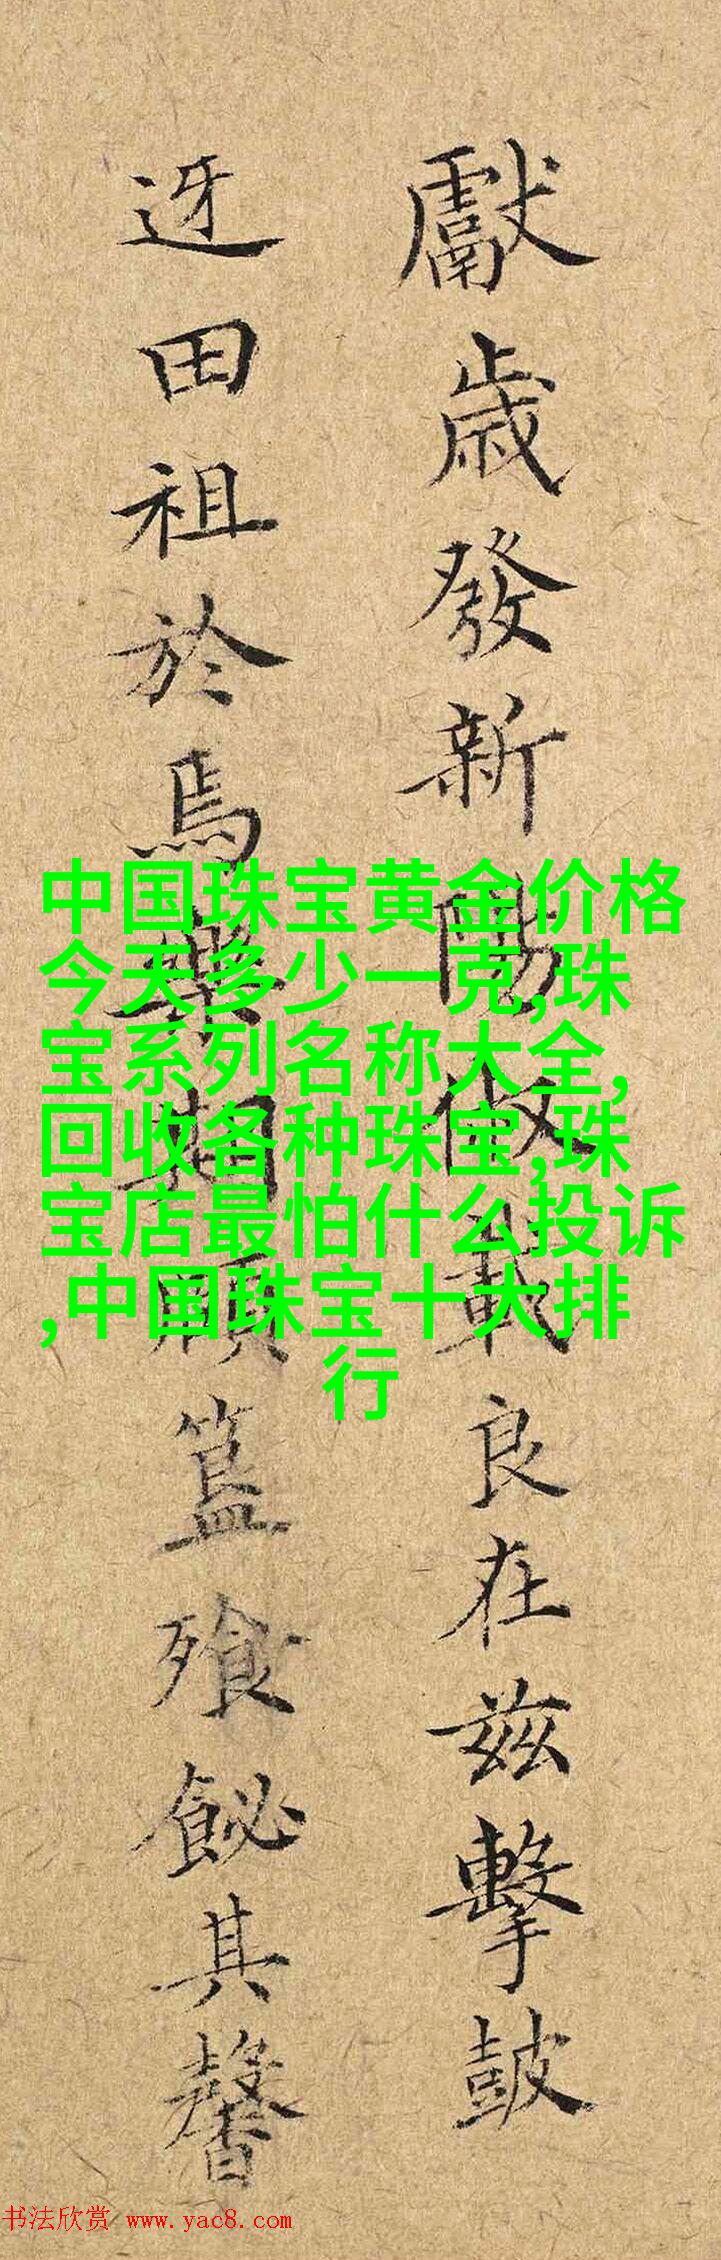 獻歲發新陽俶載良在兹擊鼓
迓田祖於焉樂相顧簋飱飶其馨
中国珠宝黄金价格
今天多少一克,珠
宝系列名称大全,
回收各种珠宝,珠
宝店最怕什么投诉
,中国珠宝十大排
行
书法欣赏 www.yac8.com